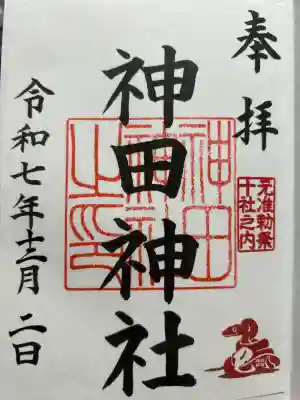 奉拝
元准勅祭
十社之内
神田神社
神田
神社
之印
令和七年十二月二日